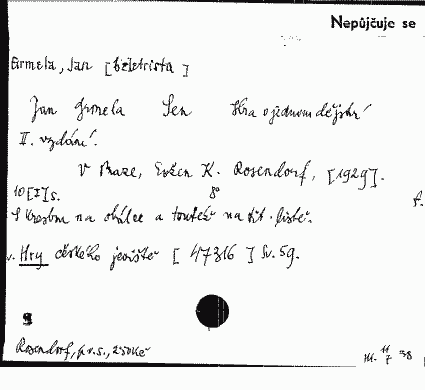 Nepůjčuje se
Grmela, Jan [beletrista]
Jan Grmela Sen Hra o jednom dějství
II. vydání.
V Praze, Evžen K. Rosendorf, [1929].
10 [I] s. 8°
S kresbou na obálce a toutéž na tit. listě.
v. Hry českého jeviště [47316] Sv. 59.
9
Rosendorf, p.r.s., 2'50 Kč
11 38